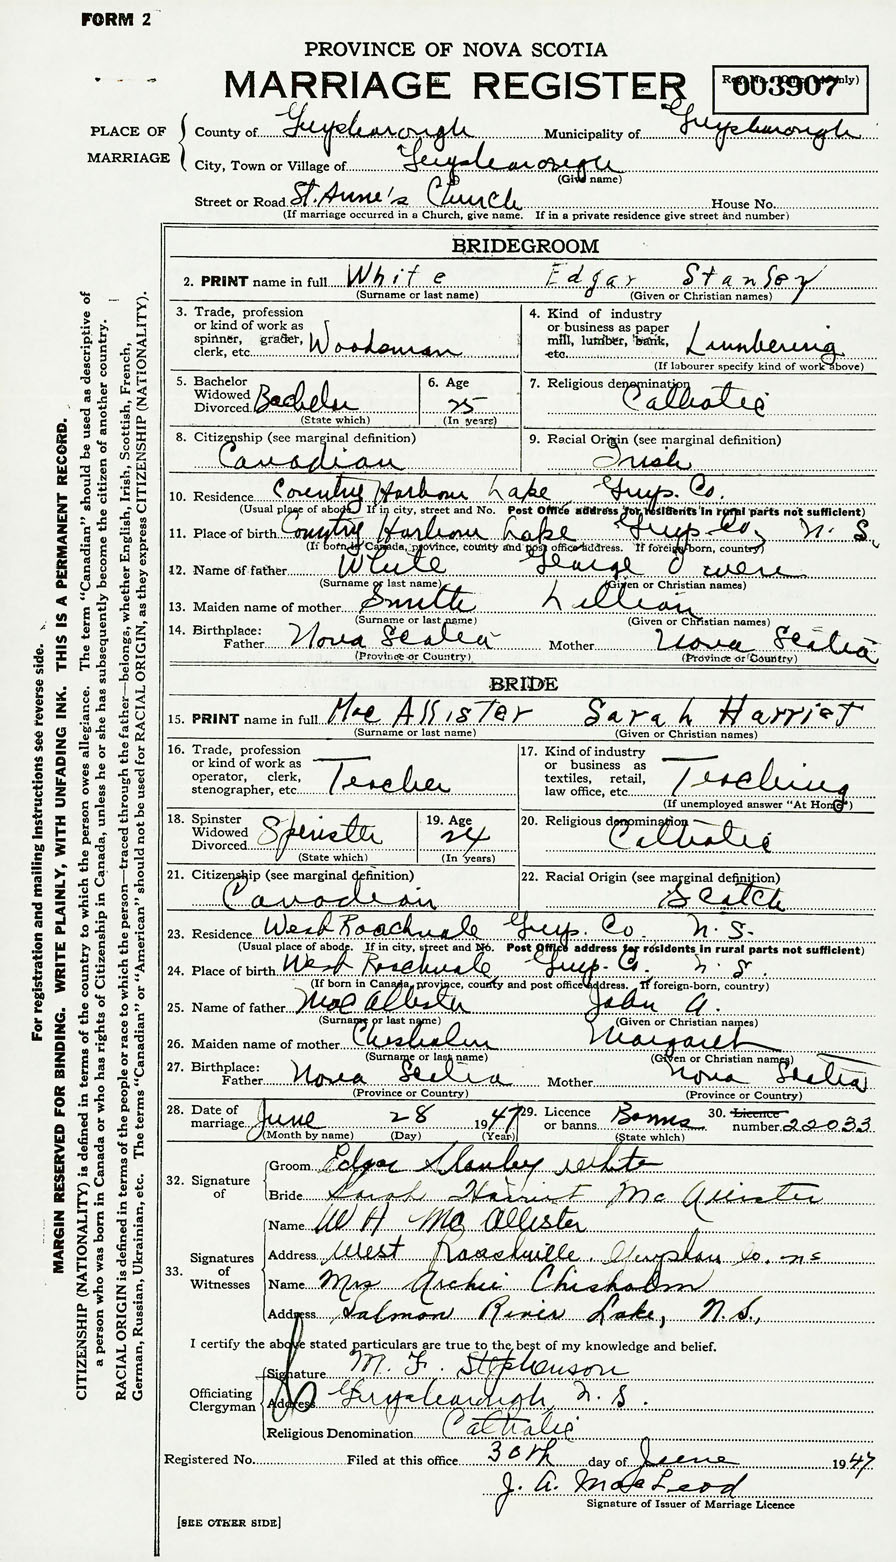 FORM 2
PROVINCE OF NOVA SCOTIA
MARRIAGE REGISTER
003907
PLACE OF MARRIAGE
County of Guysborough Municipality of Guysborough
City, Town or Village of Guysborough
(Give name)
Street or Road St. Anne's Church House No.
(If marriage occurred in a Church, give name. If in a private residence give street and number)
BRIDEGROOM
2. PRINT name in full White Edgar Stanley
(Surname or last name) (Given or Christian names)
3. Trade, profession or kind of work as spinner, grader, clerk, etc. Woodsman
4. Kind of industry or business as paper mill, lumber, bank, etc. Lumbering
(If labourer specify kind of work above)
5. Bachelor Widowed Divorced Bachelor
(State which)
6. Age 25
(In years)
7. Religious denomination Catholic
8. Citizenship (see marginal definition) Canadian
9. Racial Origin (see marginal definition) Irish
10. Residence Country Harbour Lake Guys. Co.
(Usual place of abode. If in city, street and No. Post Office address for residents in rural parts not sufficient)
11. Place of birth Country Harbour Lake Guys. Co, N. S.
(If born in Canada, province, county and post office address. If foreign-born, country)
12. Name of father White George Owen
(Surname or last name) (Given or Christian names)
13. Maiden name of mother Smith Lillian
(Surname or last name) (Given or Christian names)
14. Birthplace: Father Nova Scotia Mother Nova Scotia
(Province or Country) (Province or Country)
BRIDE
15. PRINT name in full MacAllister Sarah Harriet
(Surname or last name) (Given or Christian names)
16. Trade, profession or kind of work as operator, clerk, stenographer, etc. Teacher
17. Kind of industry or business as textiles, retail, law office, etc. Teaching
(If unemployed answer "At Home")
18. Spinster Widowed Divorced Spinster
(State which)
19. Age 24
(In years)
20. Religious denomination Catholic
21. Citizenship (see marginal definition) Canadian
22. Racial Origin (see marginal definition) Scotch
23. Residence West Roachvale Guys. Co. N. S.
(Usual place of abode. If in city, street and No. Post Office address for residents in rural parts not sufficient)
24. Place of birth West Roachvale, Guys. Co. N. S.
(If born in Canada, province, county and post office address. If foreign-born, country)
25. Name of father MacAllister John A.
(Surname or last name) (Given or Christian names)
26. Maiden name of mother Chisholm Margaret
(Surname or last name) (Given or Christian names)
27. Birthplace: Father Nova Scotia Mother Nova Scotia
(Province or Country) (Province or Country)
28. Date of marriage June 28 1947
(Month by name) (Day) (Year)
29. Licence or banns Banns
(State which)
30. Licence number 22033
32. Signature of
Groom Edgar Stanley White
Bride Sarah Harriet McAllister
33. Signatures of Witnesses
Name W H McAllister
Address West Roachville, Guysboro Co. NS
Name Mrs Archie Chisholm
Address Salmon River Lake, N.S.,
I certify the above stated particulars are true to the best of my knowledge and belief.
Officiating Clergyman
Signature M. F. Stephenson
Address Guysborough, N. S.
Religious Denomination Catholic
Registered No. Filed at this office 30th day of June 1947
J. A. MacLeod
Signature of Issuer of Marriage Licence
[SEE OTHER SIDE]
For registration and mailing instructions see reverse side.
MARGIN RESERVED FOR BINDING. WRITE PLAINLY, WITH UNFADING INK. THIS IS A PERMANENT RECORD.
CITIZENSHIP (NATIONALITY) is defined in terms of the country to which the person owes allegiance. The term "Canadian" should be used as descriptive of
a person who was born in Canada or who has rights of Citizenship in Canada, unless he or she has subsequently become the citizen of another country.
RACIAL ORIGIN is defined in terms of the people or race to which the person—traced through the father—belongs, whether English, Irish, Scottish, French,
German, Russian, Ukrainian, etc. The terms "Canadian" or "American" should not be used for RACIAL ORIGIN, as they express CITIZENSHIP (NATIONALITY).